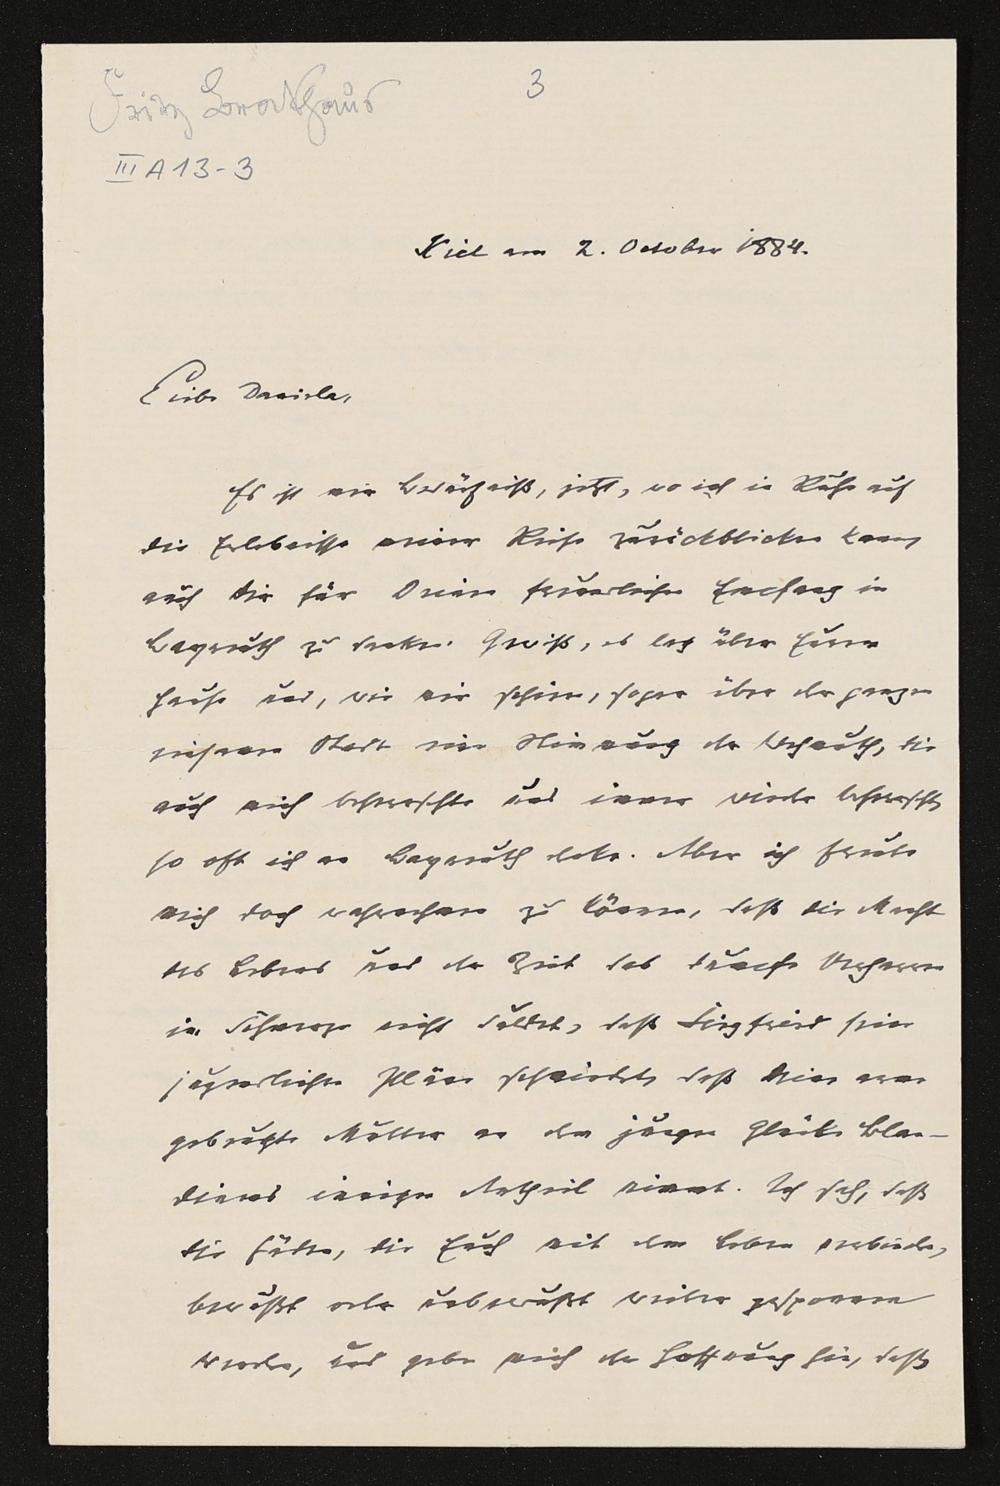 Fritz Brockhaus
3
III A 13-3
Kiel am 2. October 1884.
Liebe Daniela,
Es ist mir Bedürfniß, jetzt, wo ich in Ruhe auf
die Erlebnisse meiner Reise zurückblicken kann,
auch Dir für Deinen freundlichen Empfang in
Bayreuth zu danken. Gewiß, es lag über Eurem
Hause und, wie mir schien, sogar über der ganzen
einsamen Stadt eine Stimmung der Wehmuth, die
auch mich beherrschte und immer wieder beherrscht,
so oft ich an Bayreuth denke. Aber ich freute
mich doch wahrnehmen zu können, daß die Macht
des Lebens und der Zeit das dumpfe Verharren
im Schmerze nicht duldet, daß Siegfried seine
jugendlichen Pläne schmiedet, daß Deine arme
gebeugte Mutter an dem jungen Glücke Blan-
dinens innigen Antheil nimmt. Ich sah, daß
die Fäden, die Euch mit dem Leben verbinden,
bewußt oder unbewußt weiter gesponnen
werden, und gebe mich der Hoffnung hin, daß